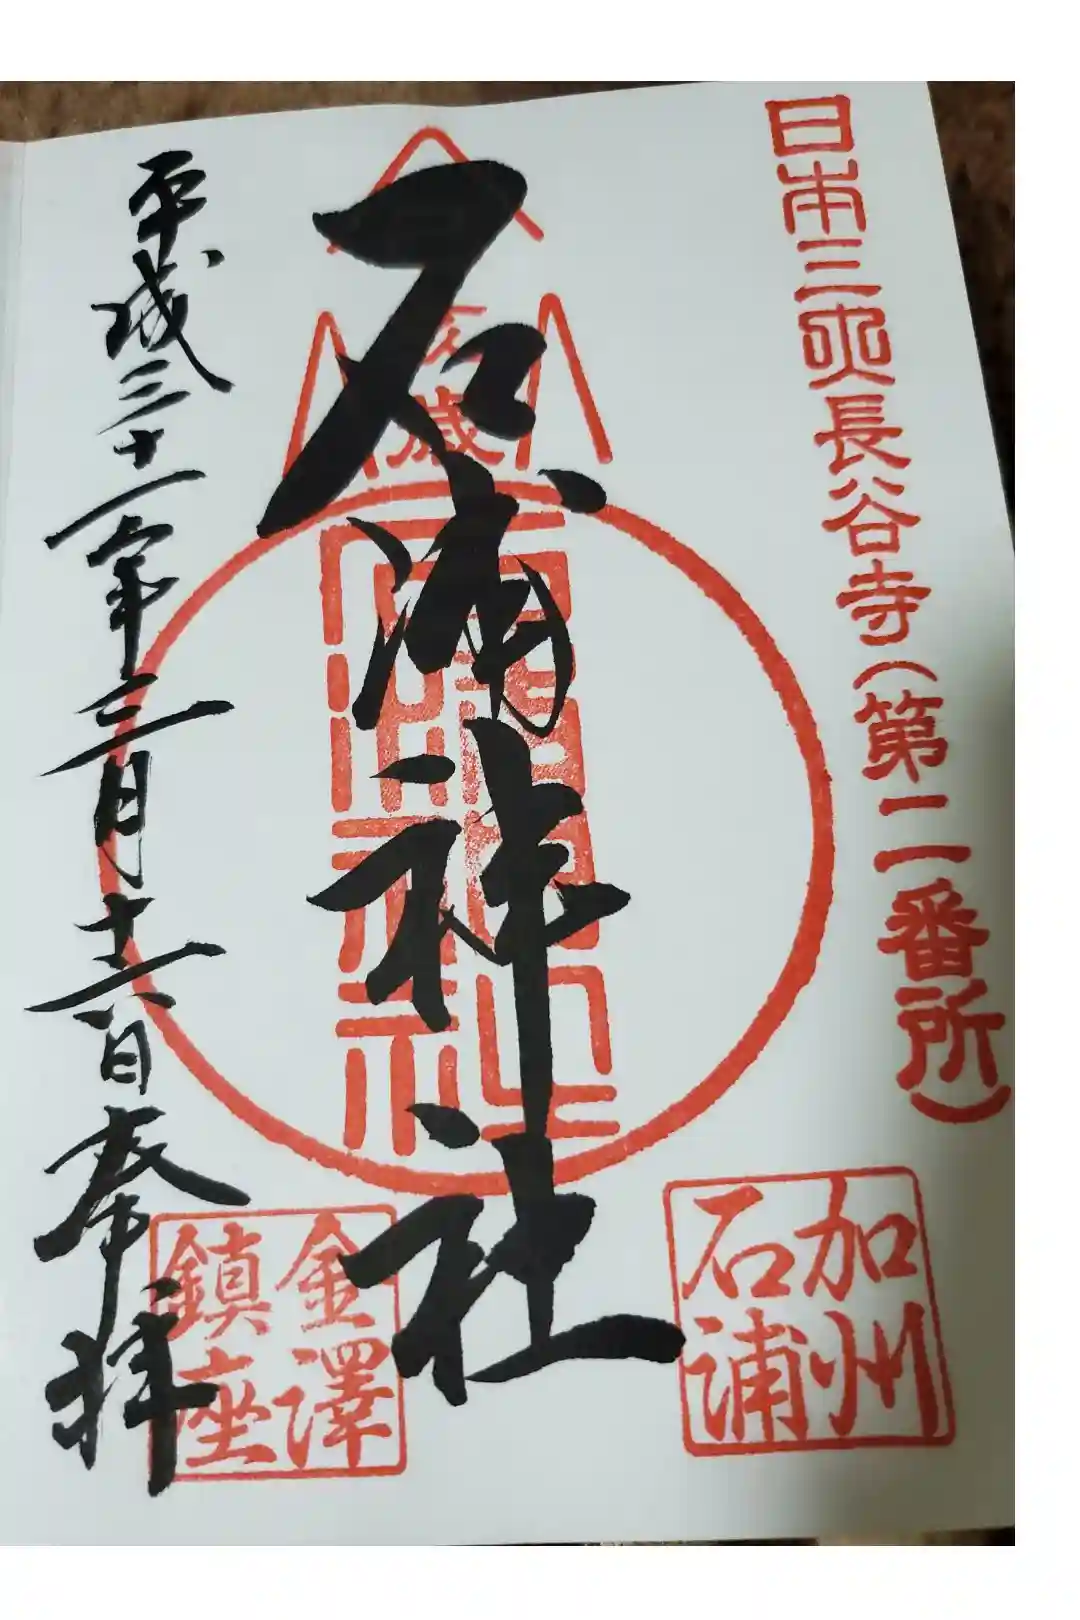 日本三大長谷寺(第二番所)
加州
石浦
石浦神社
万歳
金澤
鎮座
平成三十一年三月十六日奉拝